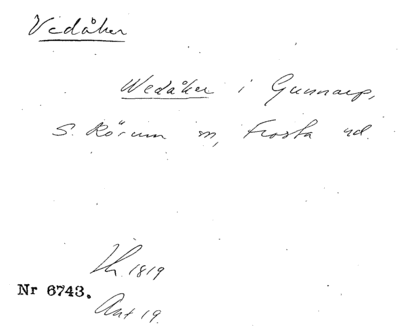 Vedåker
Wedåker i Gunnarp,
S. Rörum sn, Frosta hd.
Lh. 1819
Nr 6743.
Ant 19.